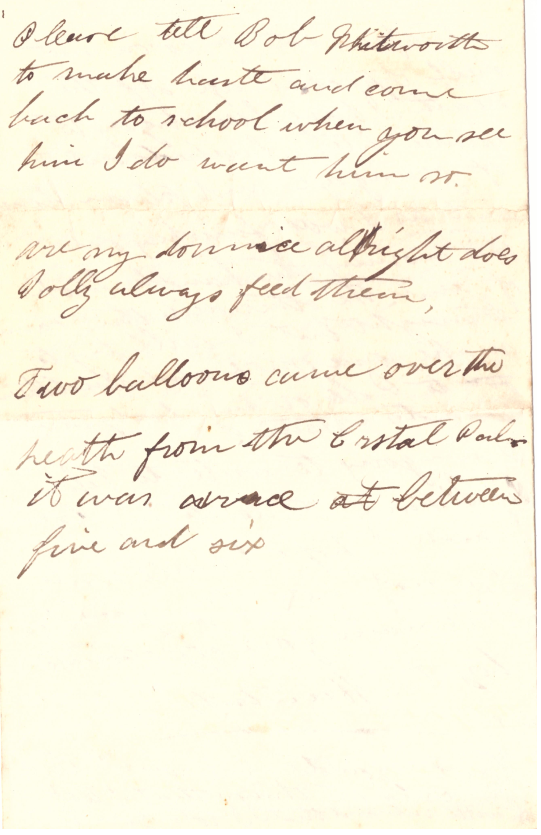 Please tell Bob Whitworth
to make haste and come
back to school when you see
him I do want him so.
are my dormice allright does
Polly always feed them,
Two balloons came over the
heath from the Crstal Pala
it was a race at between
five and six